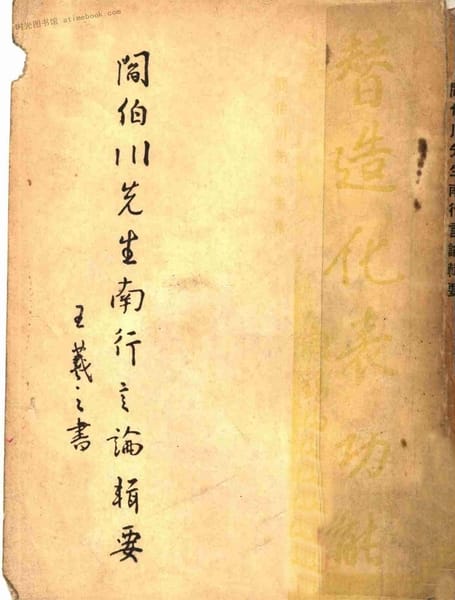 时光图书馆 atimebook.com
閻伯川先生南行言論輯要
替造化表功能
閻伯川先生南行言論輯要
王羲之書